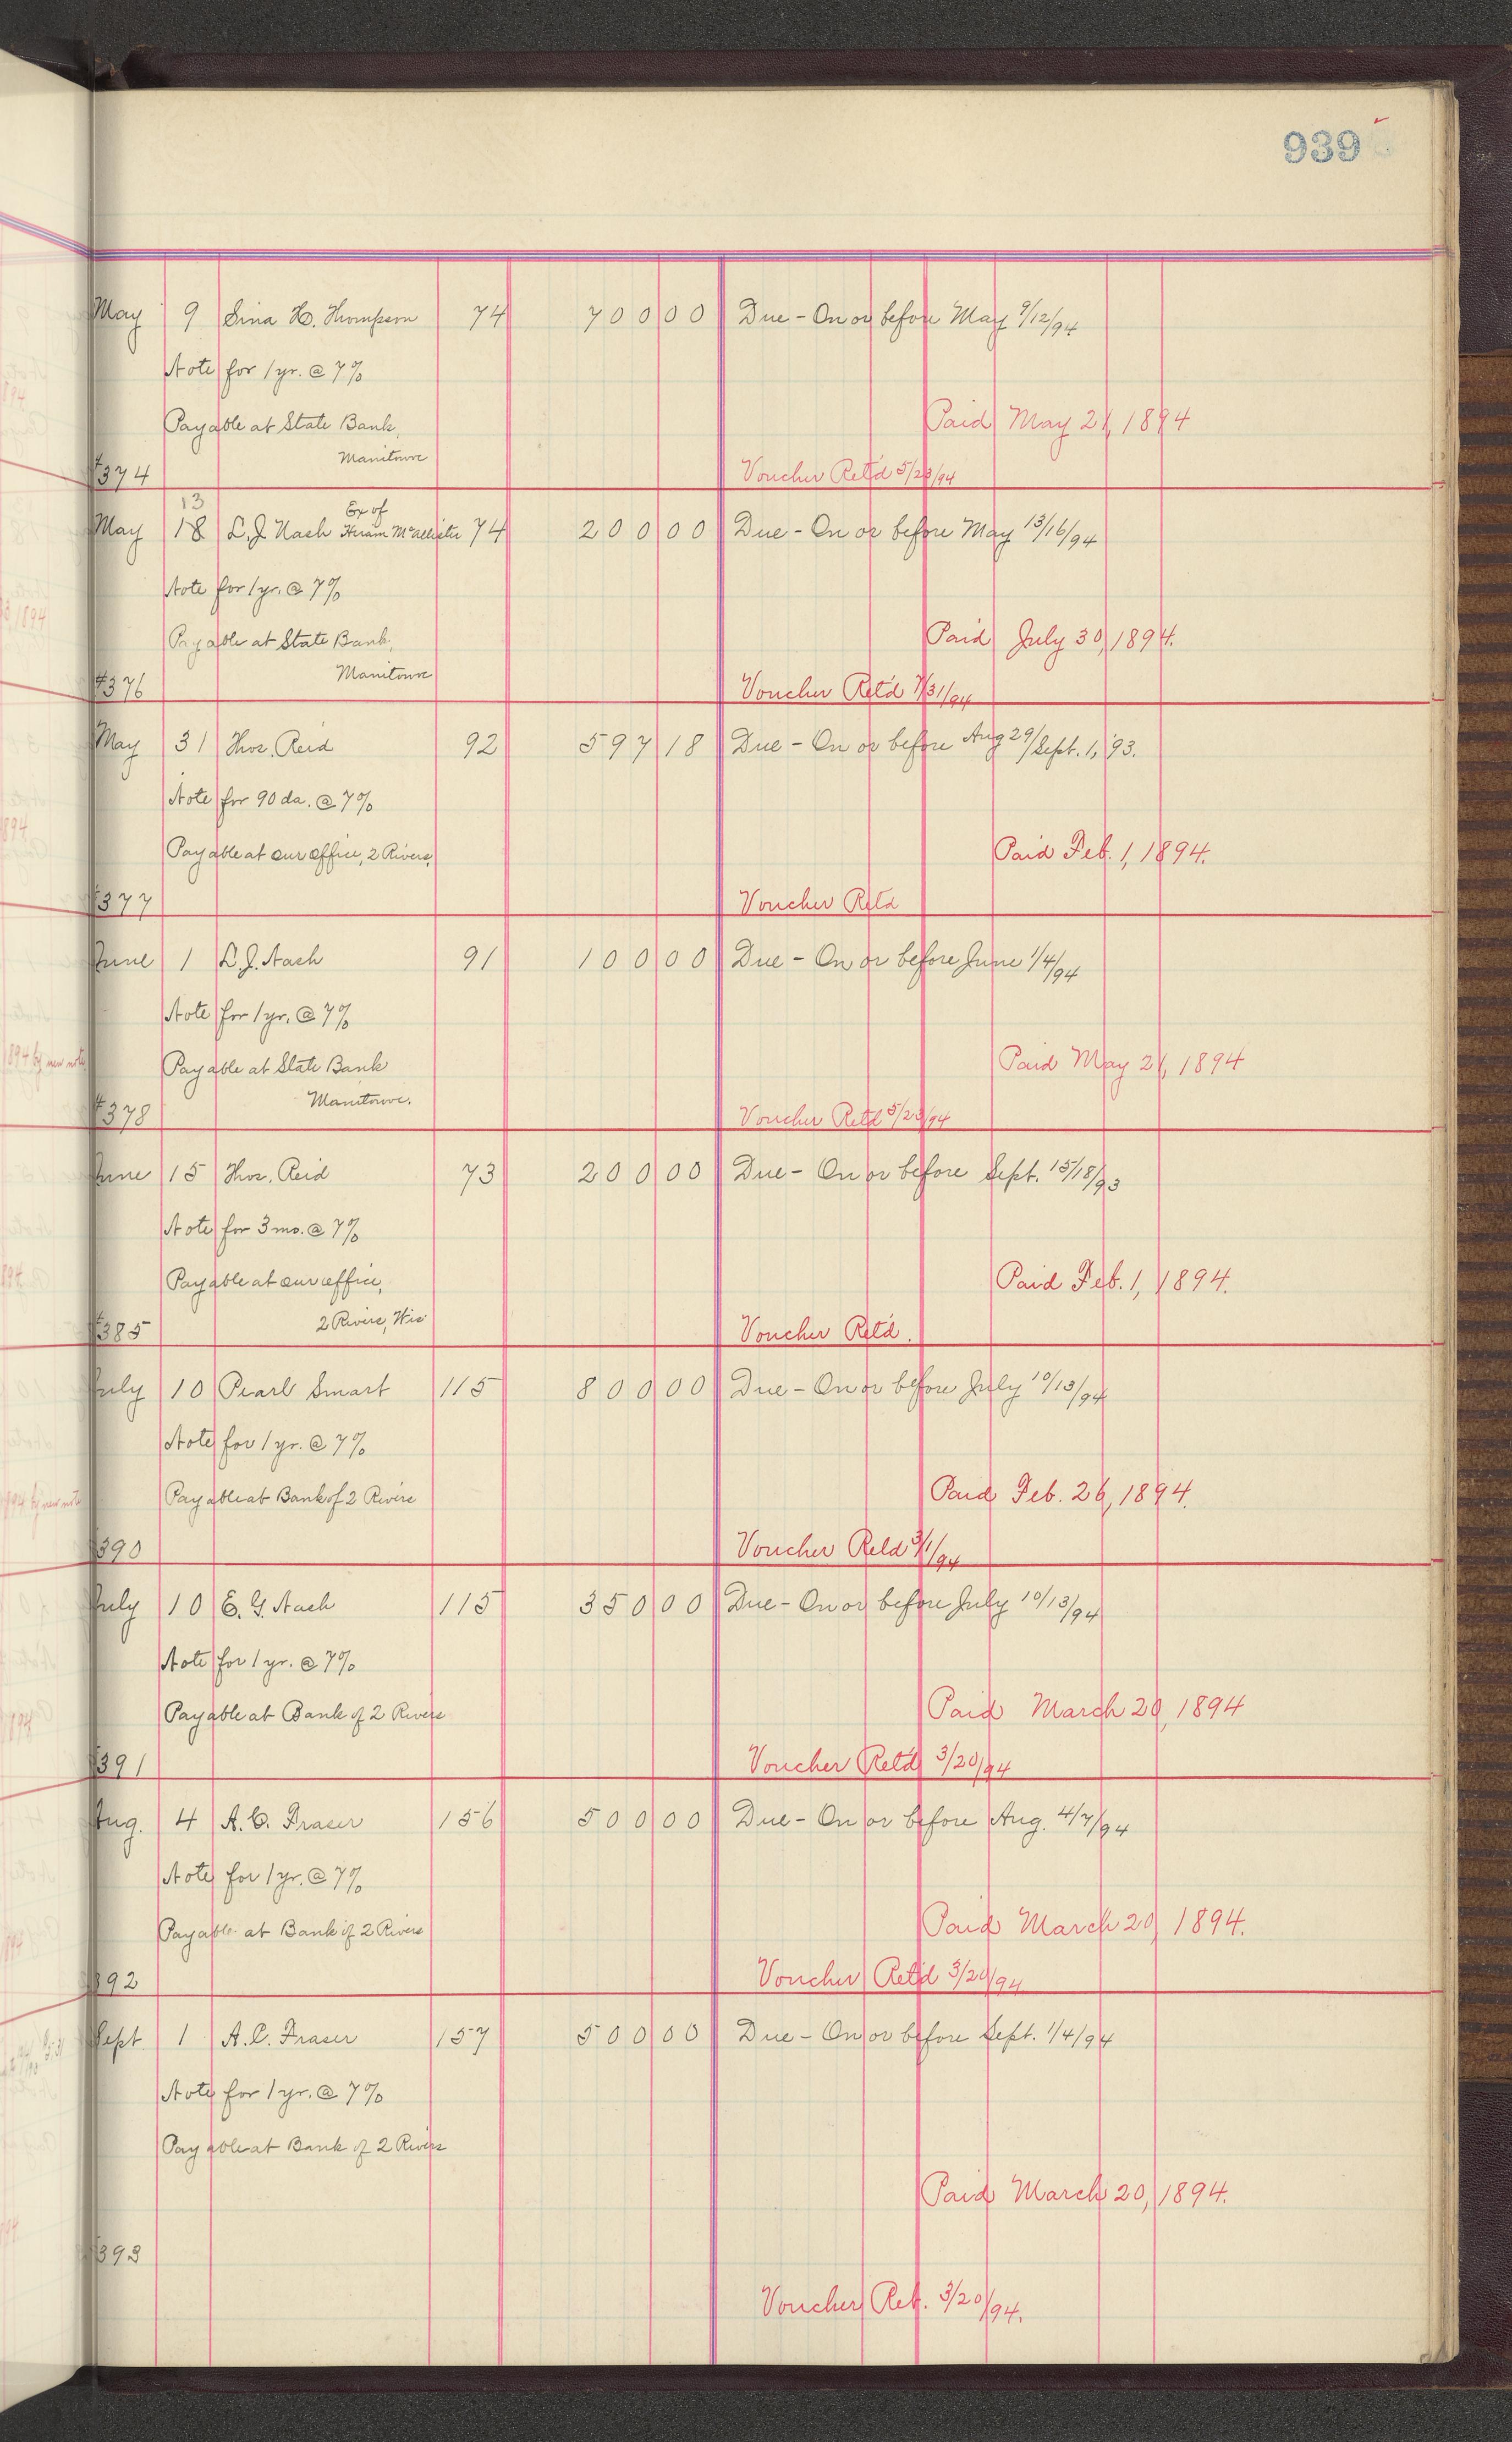 939
May 9 Sina H. Thompson 74 700 00 Due - On or before May 9/12/94
Note for 1 yr. @ 7%
Payable at State Bank, Paid May 21, 1894
Manitowc
#374 Voucher Ret'd 5/23/94
13 Ex of
May 18 L. J. Nash Hiram McAllister 74 200 00 Due - On or before May 13/16/94
Note for 1 yr. @ 7%
Payable at State Bank, Paid July 30, 1894.
Manitowc
#376 Voucher Ret'd 7/31/94
May 31 Thos. Reid 92 597 18 Due - On or before Aug 29/Sept. 1, '93.
Note for 90 da. @ 7%
Payable at our office, 2 Rivers, Paid Feb. 1, 1894.
#377 Voucher Ret'd
June 1 L. J. Nash 91 100 00 Due - On or before June 1/4/94
Note for 1 yr. @ 7%
Payable at State Bank Paid May 21, 1894
Manitowc.
#378 Voucher Ret'd 5/23/94
June 15 Thos. Reid 73 200 00 Due - On or before Sept. 15/18/93
Note for 3 mo. @ 7%
Payable at our office, Paid Feb. 1, 1894.
2 Rivers, Wis
#385 Voucher Ret'd.
July 10 Pearl Smart 115 800 00 Due - On or before July 10/13/94
Note for 1 yr. @ 7%
Payable at Bank of 2 Rivers Paid Feb. 26, 1894.
#390 Voucher Ret'd 3/1/94
July 10 E. G. Nash 115 350 00 Due - On or before July 10/13/94
Note for 1 yr. @ 7%
Payable at Bank of 2 Rivers Paid March 20, 1894
#391 Voucher Ret'd 3/20/94
Aug. 4 A. C. Fraser 156 500 00 Due - On or before Aug. 4/7/94
Note for 1 yr. @ 7%
Payable at Bank of 2 Rivers Paid March 20, 1894.
#392 Voucher Ret'd 3/20/94
Sept. 1 A. C. Fraser 157 500 00 Due - On or before Sept. 1/4/94
Note for 1 yr. @ 7%
Payable at Bank of 2 Rivers
Paid March 20, 1894.
#393
Voucher Ret. 3/20/94.